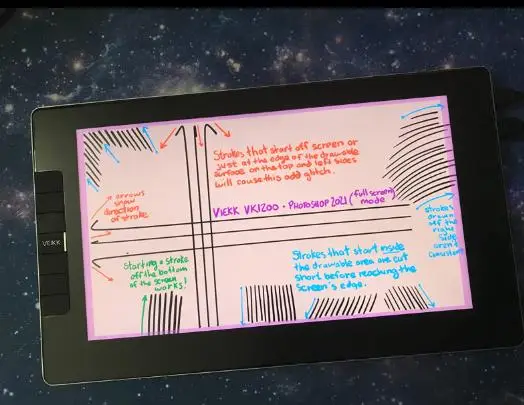 Strokes that start off screen or
just at the edge of the drawable
surface on the top and left sides
will cause this odd glitch.
arrows
show
direction
of stroke
VIEKK VK1200 • PHOTOSHOP 2021 (full screen
mode)
strokes
drawn
off the
right
side
aren't
consistent
VEIKK
Starting a stroke
off the bottom
of the screen
works!
Strokes that start inside
the drawable area are cut
short before reaching the
screen's edge.